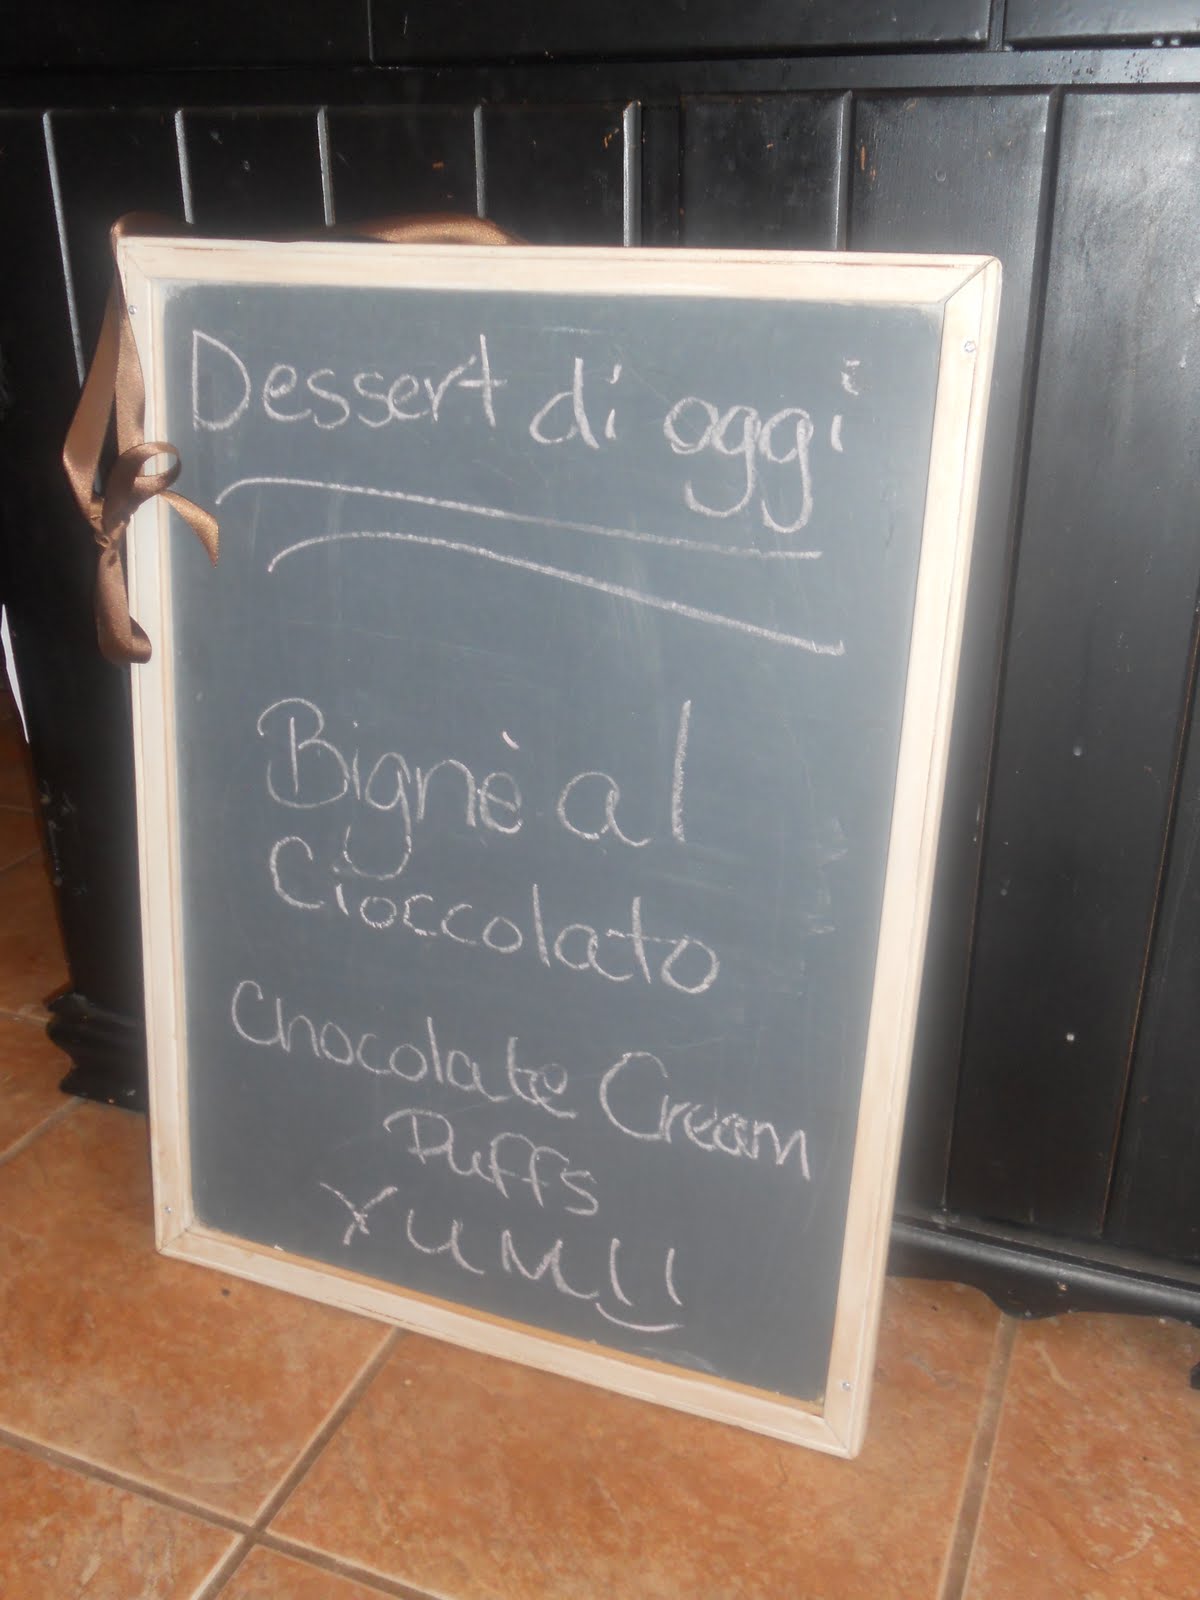 Dessert di oggi
Bignè al
Cioccolato
Chocolate Cream
Puffs
YUM!!